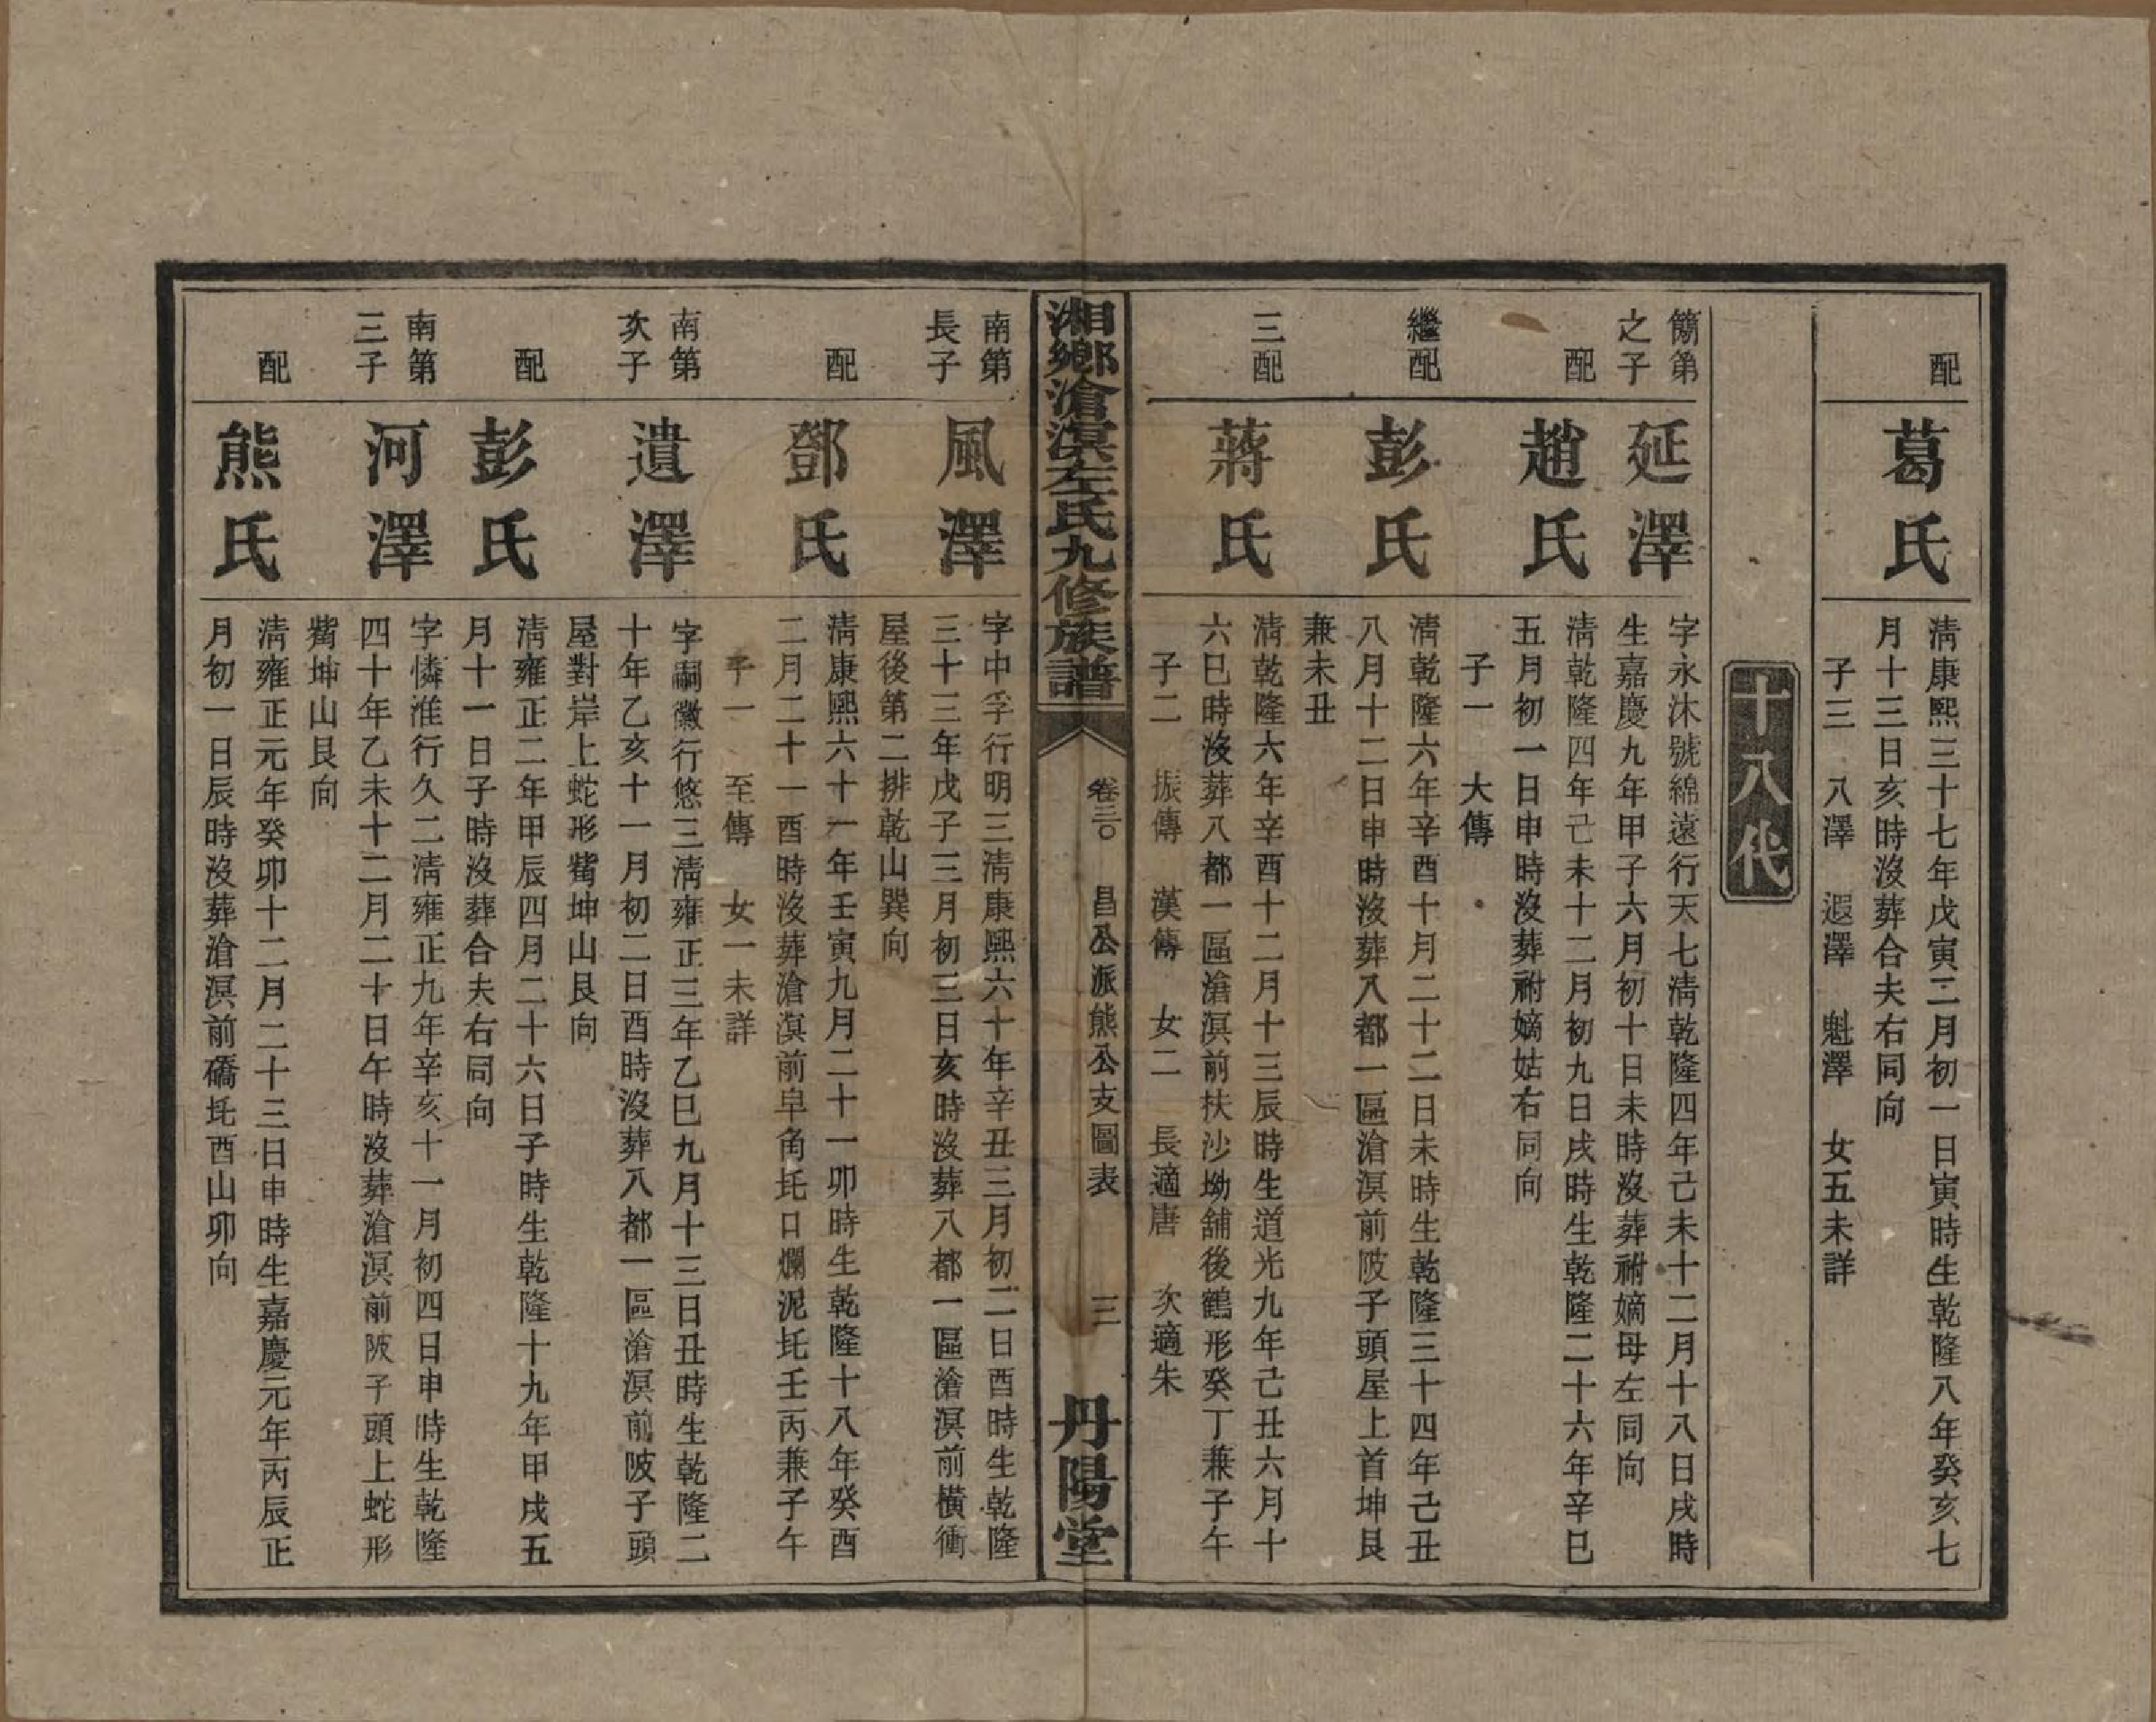 配
葛氏
清康熙三十七年戊寅二月初一日寅時生乾隆八年癸亥七
月十三日亥時沒葬合夫右同向
子三 八澤 遐澤 魁澤 女五未詳
十八代
簡第
之子
延澤
字永沐號綿遠行天七清乾隆四年己未十二月十八日戌時
生嘉慶九年甲子六月初十日未時沒葬祔嫡母左同向
配
趙氏
清乾隆四年己未十二月初九日戌時生乾隆二十六年辛巳
五月初一日申時沒葬祔嫡姑右同向
子一 大傳
繼配
彭氏
清乾隆六年辛酉十月二十二日未時生乾隆三十四年己丑
八月十二日申時沒葬八都一區滄溟前陂子頭屋上首坤艮
兼未丑
三配
蔣氏
清乾隆六年辛酉十二月十三辰時生道光九年己丑六月十
六巳時沒葬八都一區滄溟前扶沙坳舖後鶴形癸丁兼子午
子二 振傳 漢傳 女二 長適唐 次適朱
湘鄉滄溟左氏九修族譜
卷三〇 昌公派熊公支圖表 三
丹陽堂
南第
長子
風澤
字中孚行明三清康熙六十年辛丑三月初二日酉時生乾隆
三十三年戊子三月初三日亥時沒葬八都一區滄溟前橫衝
屋後第二排乾山巽向
配
鄧氏
清康熙六十一年壬寅九月二十一卯時生乾隆十八年癸酉
二月二十一酉時沒葬滄溟前皁角圫口爛泥圫壬丙兼子午
子一 至傳 女一未詳
南第
次子
遺澤
字嗣徽行悠三清雍正三年乙巳九月十三日丑時生乾隆二
十年乙亥十一月初二日酉時沒葬八都一區滄溟前陂子頭
屋對岸上蛇形觜坤山艮向
配
彭氏
清雍正二年甲辰四月二十六日子時生乾隆十九年甲戌五
月十一日子時沒葬合夫右同向
南第
三子
河澤
字憐淮行久二清雍正九年辛亥十一月初四日申時生乾隆
四十年乙未十二月二十日午時沒葬滄溟前陂子頭上蛇形
觜坤山艮向
配
熊氏
清雍正元年癸卯十二月二十三日申時生嘉慶元年丙辰正
月初一日辰時沒葬滄溟前礄圫酉山卯向